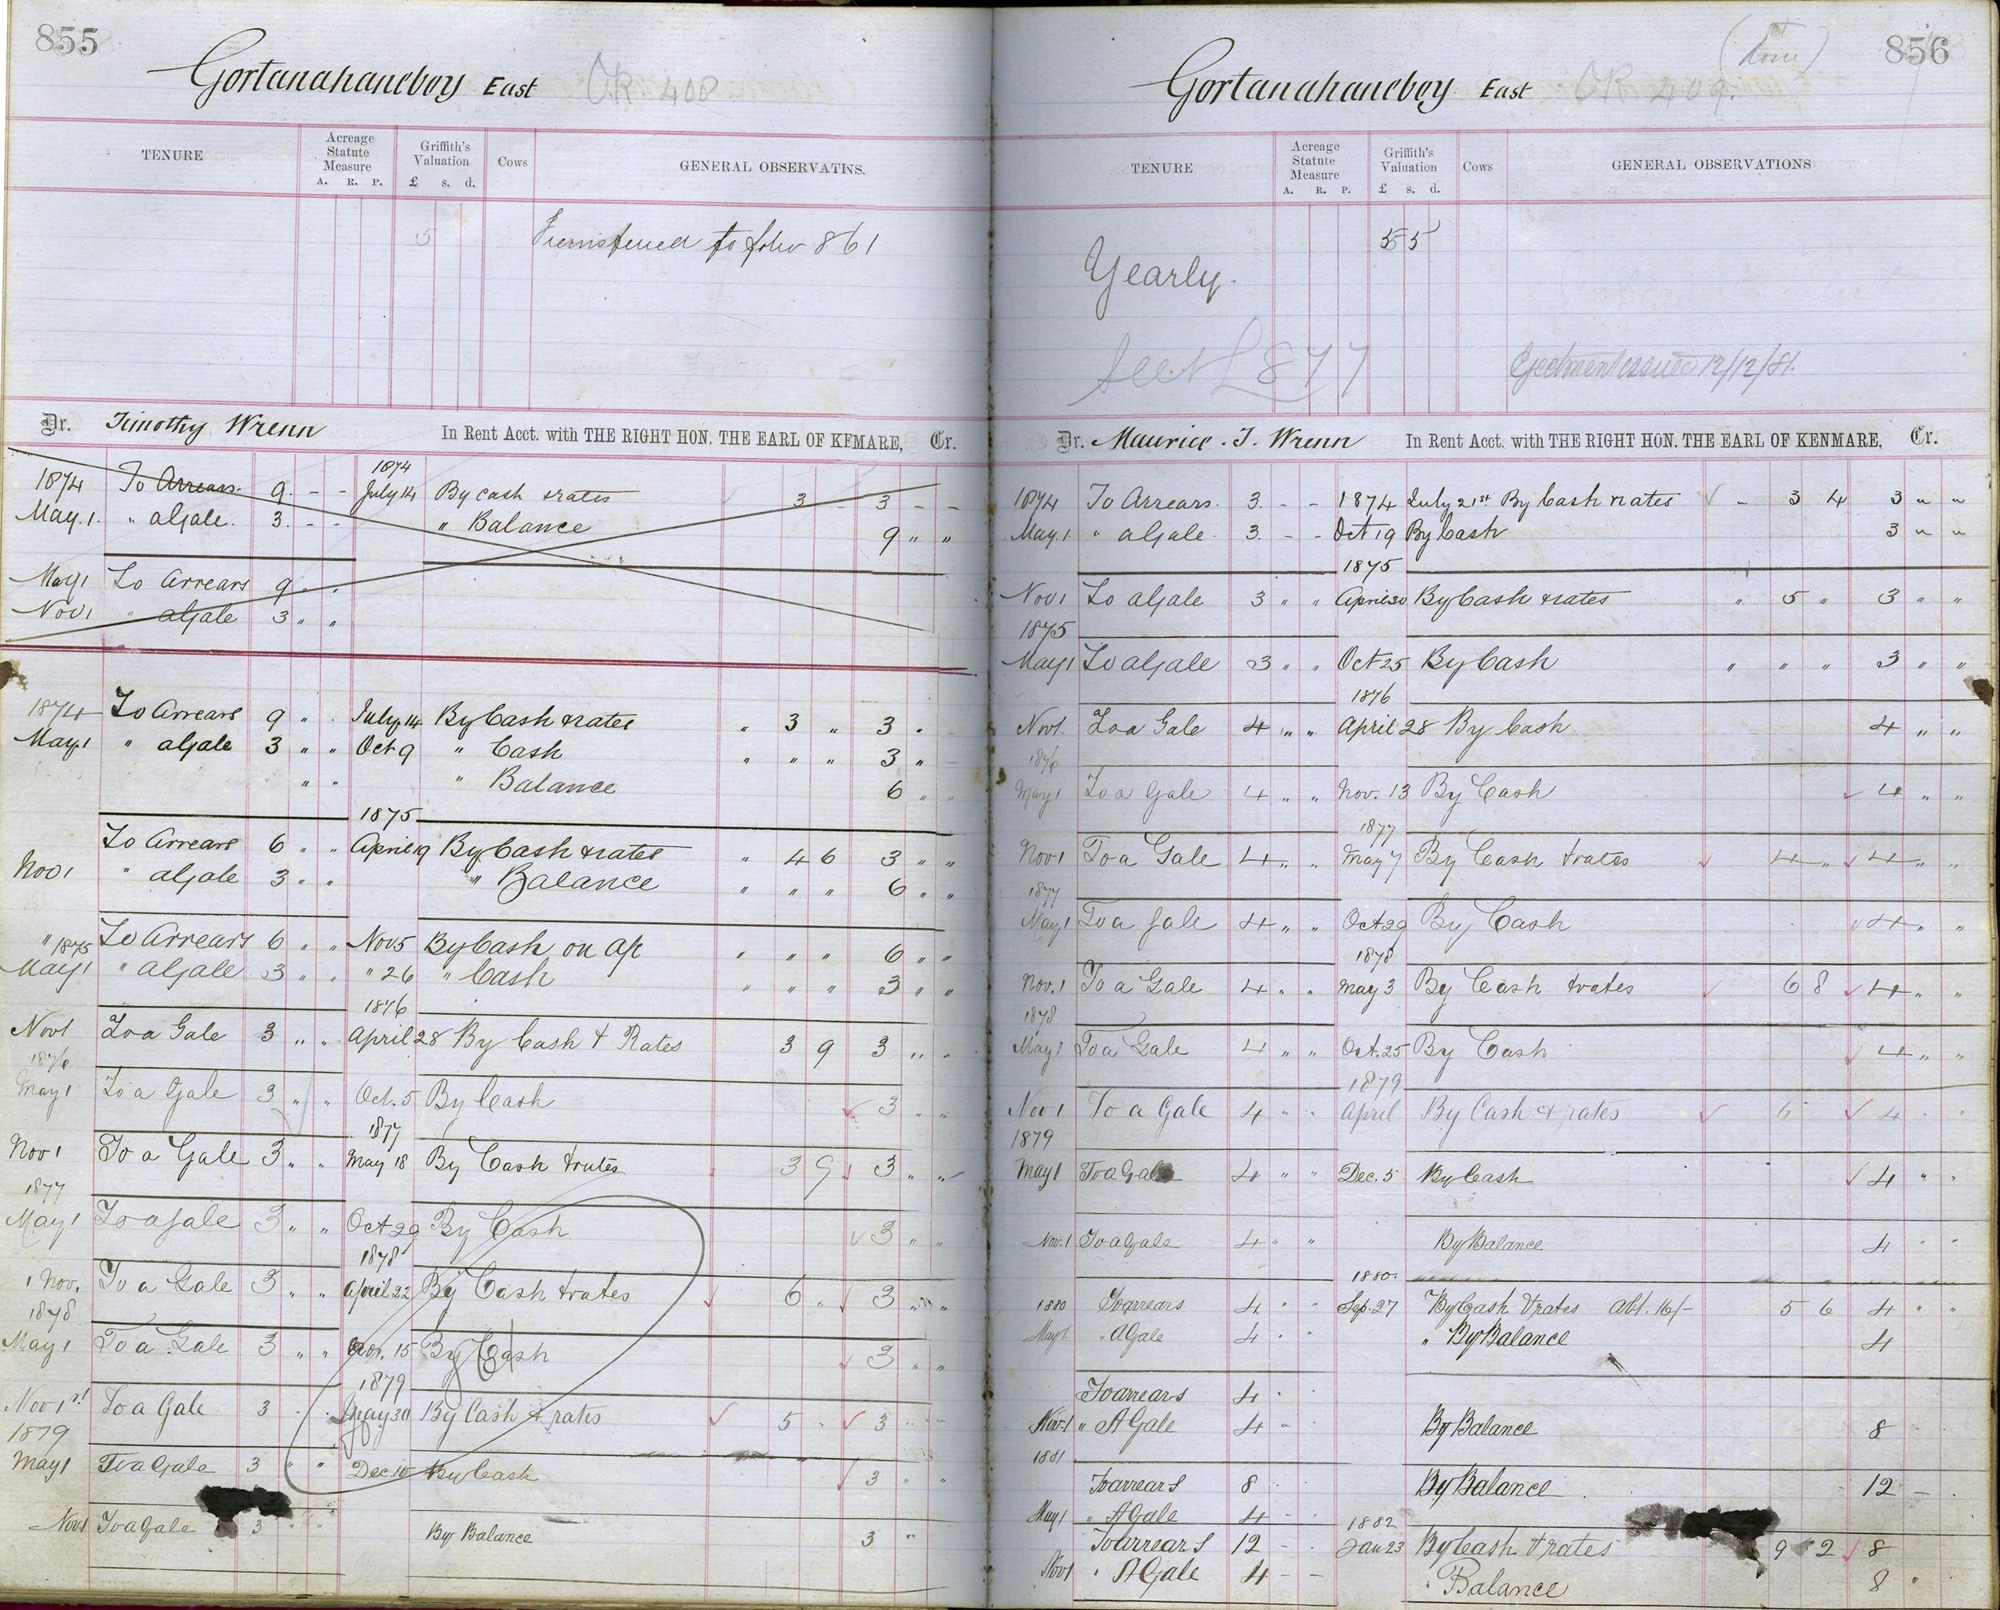 855
Gortanahaneboy East OK 408
TENURE Acreage Statute Measure A. R. P. Griffith's Valuation £ s. d. Cows GENERAL OBSERVATINS.
5 Transferred to folio 861
Dr. Timothy Wrenn In Rent Acct. with THE RIGHT HON. THE EARL OF KEMARE, Cr.
1874
1874 To Arrears 9 - - July 14 By cash & rates 3 - 3 - -
May. 1. " a Gale. 3. - - " Balance 9 " "
May 1 To Arrears 9 " "
Nov 1 " a Gale 3 " "
1874 To Arrears 9 " " July 14 By Cash & rates " 3 " 3 "
May. 1 " a Gale 3 " " Oct 9 " Cash " " " 3 "
" " " Balance 6 " "
1875
To Arrears 6 " " April 19 By Cash & rates " 4 6 3 " "
Nov 1 " a Gale 3 " " " Balance " " " 6 " "
" 1875 To Arrears 6 " " Nov 5 By Cash on a/c " " " 6 " "
May 1 " a Gale 3 " " " 26 " Cash " " " 3 " "
1876
Nov 1 To a Gale 3 " " April 28 By Cash & Rates 3 9 3 " "
1876
May 1 To a Gale 3 " " Oct. 5 By Cash 3 " "
1877
Nov 1 To a Gale 3 " " May 18 By Cash & rates 3 9 3 " "
1877
May 1 To a Gale 3 " " Oct 29 By Cash 3 " "
1878
1 Nov. To a Gale 3 " " April 22 By Cash & rates 6 " 3 " "
1878
May 1 To a Gale 3 " " Nov. 15 By Cash 3 " "
1879
Nov 1st To a Gale 3 " " May 30 By Cash & rates 5 " 3 " "
1879
May 1 To a Gale 3 " " Dec. 10 By Cash 3 " "
Nov 1 To a Gale 3 " " By Balance 3 "
856
Gortanahaneboy East OK 409.
TENURE Acreage Statute Measure A. R. P. Griffith's Valuation £ s. d. Cows GENERAL OBSERVATIONS
5 5
Yearly.
see L 877 Ejectment issued 12/12/81.
Dr. Maurice. T. Wrenn In Rent Acct. with THE RIGHT HON. THE EARL OF KENMARE, Cr.
1874 To Arrears. 3. - - 1874 July 21st By Cash & rates - 3 4 3 " "
May. 1. " a Gale. 3. - - Oct 19 By Cash 3 " "
1875
Nov 1 To a Gale 3 " " April 30 By Cash & rates " 5 " 3 " "
1875
May 1 To a Gale 3 " " Oct 25 By Cash " " " 3 " "
1876
Nov 1. To a Gale 4 " " April 28 By Cash 4 " "
1876
May 1 To a Gale 4 " " Nov. 13 By Cash 4 " "
1877
Nov 1 To a Gale 4 " " May 7 By Cash & rates 4 " 4 " "
1877
May 1 To a Gale 4 " " Oct 29 By Cash 4 " "
1878
Nov. 1 To a Gale 4 " " May 3 By Cash & rates 6 8 4 " "
1878
May 1 To a Gale 4 " " Oct. 25 By Cash 4 " "
1879
Nov 1 To a Gale 4 " " April By Cash & rates 6 4 " "
1879
May 1 To a Gale 4 " " Dec. 5 By Cash 4 " "
Nov. 1 To a Gale 4 " " By Balance 4 " "
1880.
1880 To arrears 4 " " Sep. 27 By Cash & rates Abt. 16/- 5 6 4 " "
May 1 " A Gale 4 " " " By Balance 4
To arrears 4 "
Nov. 1 " A Gale 4 " By Balance 8
1881
To arrears 8 By Balance 12 -
May 1 " A Gale 4 - -
1882
To arrears 12 - - Jan 23 By Cash & rates 9 2 8
Nov 1 " A Gale 4 - - " Balance 8 "